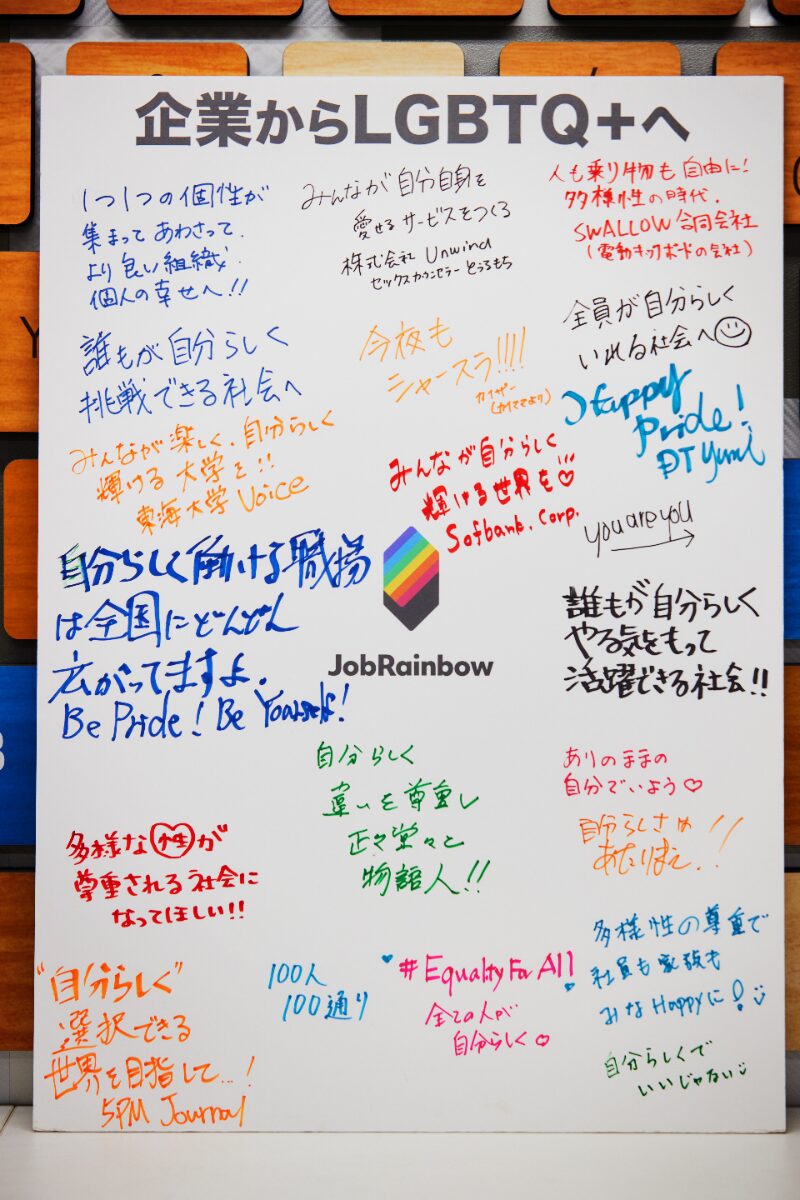 企業からLGBTQ+へ
1つ1つの個性が
集まってあわさって.
より良い組織.
個人の幸せへ!!
みんなが自分自身を
愛せるサービスをつくる
株式会社 Unwind
セックスカウンセラー とうるもち
人も乗り物も自由に!
多様性の時代.
SWALLOW合同会社
(電動キックボードの会社)
誰もが自分らしく
挑戦できる社会へ
今夜も
シャースラ!!!!
カイザー
全員が自分らしく
いれる社会へ
Happy
Pride!
ĐT Yumi
みんなが楽しく、自分らしく
輝ける大学を!!
東海大学 Voice
みんなが自分らしく
輝ける世界を♡
Sofbank. Corp.
you are you
自分らしく働ける職場
は全国にどんどん
広がってますよ.
Be Pride! Be Yourself!
JobRainbow
誰もが自分らしく
やる気をもって
活躍できる社会!!
自分らしく
違いを尊重し
正々堂々と
物語人!!
ありのままの
自分でいよう♡
自分らしさめ
あたりまえ!!
多様な性が
尊重される社会に
なってほしい!!
"自分らしく"
選択できる
世界を目指して...!
5PM Journal
100人
100通り
#Equality For All
全ての人が
自分らしく♡
多様性の尊重で
社員も家族も
みなHappyに!
自分らしくで
いいじゃない